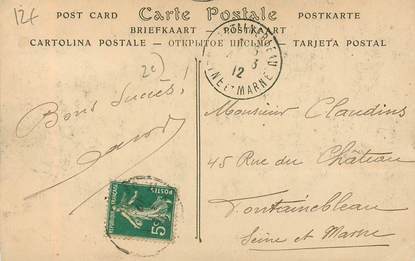 12f
POST CARD Carte Postale POSTKARTE
BRIEFKAART — POSTKAART
CARTOLINA POSTALE — ОТКРЫТОЕ ПИСЬМО — TARJETA POSTAL
3
12
SEINE-ET-MARNE
Bons Succès!
Monsieur Claudius
45 Rue du Château
Fontainebleau
Seine et Marne
POSTES
5c